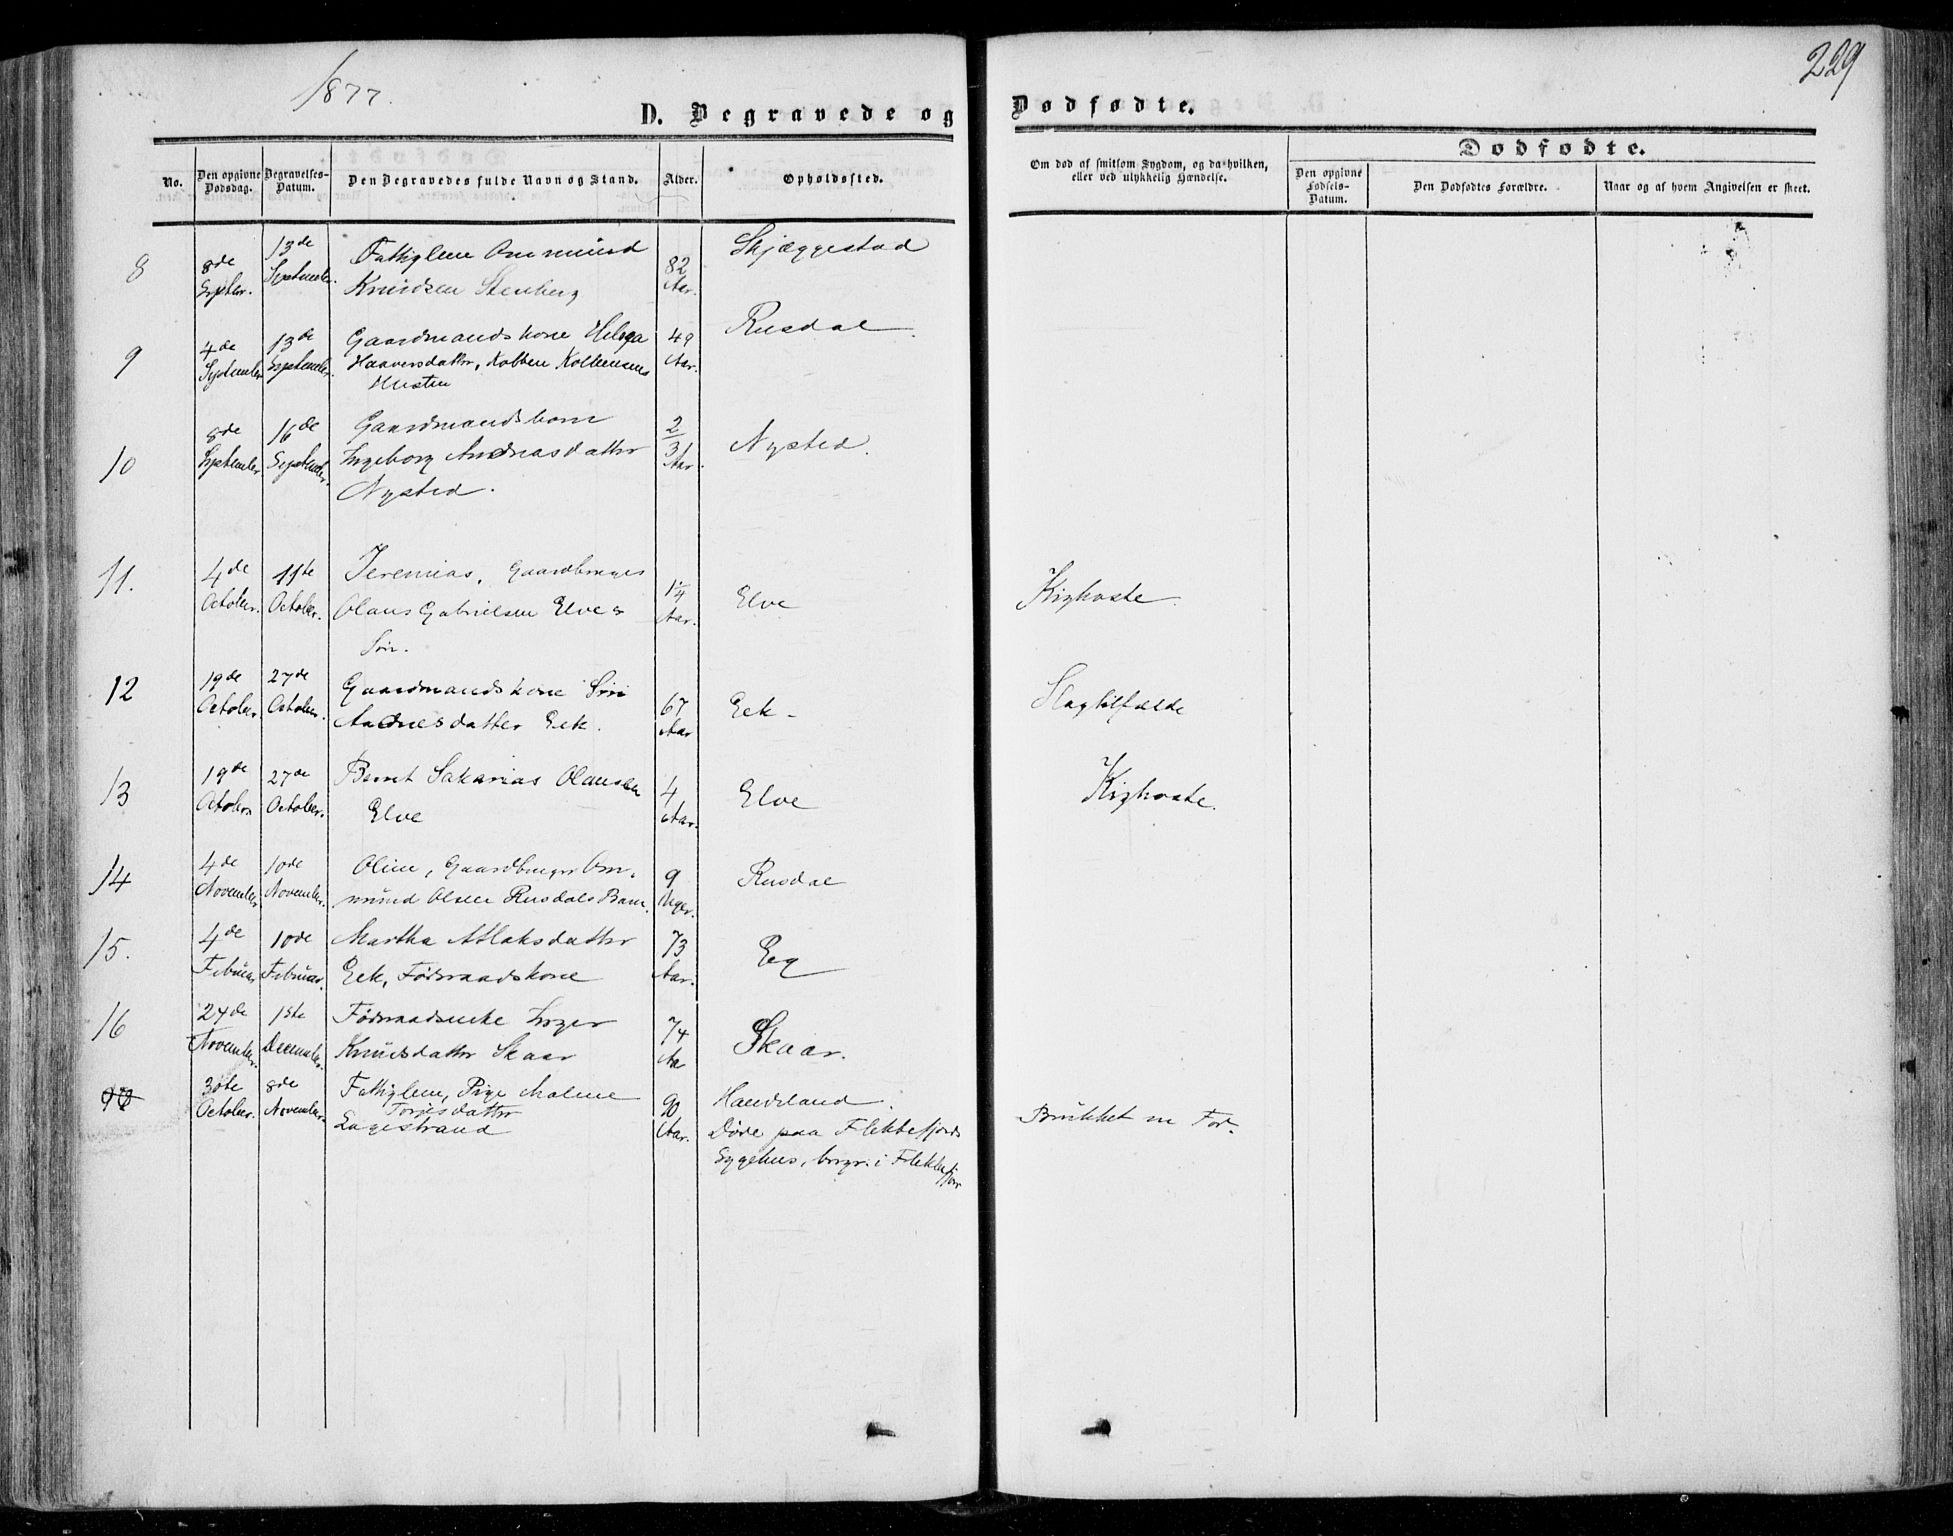 1877.
229
D. Begravede og Dødfødte.
No.
Den opgivne Dødsdag.
Begravelses-Datum.
Den Begravedes fulde Navn og Stand.
Alder.
Opholdssted.
Om død af smitsom Sygdom, og da hvilken, eller ved ulykkelig Hændelse.
Dødfødte.
Den opgivne Fødsels-Datum.
Den Dødfødtes Forældre.
Naar og af hvem Angivelsen er skeet.
8 8de 13de Fattiglem Ommund 82 Skjæggestad
Septbr. September. Knudsen Stenberg Aar.
9 4de 13de Gaardmandskone Helga 49 Rusdal
September September. Haaversdatter, Kolben Kolbensens Aar.
Hustru
10 8de 16de Gaardmandsbarn 2/3 Nysted.
September September. Ingeborg Andreasdatter Aar.
Nysted.
11. 4de 11te Jeremias, Gaardbruger 1 1/4 Elve Kighoste.
October. October. Olaus Gabrielsen Elves Aar.
Søn.
12 19de 27de Gaardmandskone Siri 67 Eek - Slagtilfælde
October October. Aadnesdatter Eek. Aar
13 19de 27de Bernt Sakarias Olausen 4 Elve Kighoste.
October October. Elve Aar.
14 4de 10de Oline, Gaardbruger Om- 9 Rusdal
November November. mund Olsen Rusdals Barn. Uger.
15. 4de 10de Martha Atlaksdatter 73 Eeg
Februar Februar. Eek, Føderaadskone Aar.
16 24de 1ste Føderaadsenke Inger 74 Skaar.
November. December. Knudsdatter Skaar Aar
30te 8de Fattiglem, Pige Malene 90 Haudeland.
October. November. Torjesdatter Aar. Døde paa Flekkefjords Brukket en Fod.
Lagestrand
Sygehus, begr. i Flekkefjor